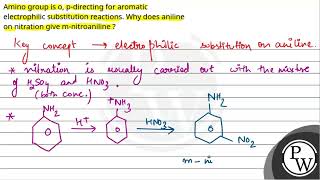 Amino group is o, p-directing for aromatic
electrophilic substitution reactions. Why does aniline
on nitration give m-nitroaniline ?
Key concept → electrophilic substitution on aniline.
* nitration is usually carried out with the mixture
of H₂SO₄ and HNO₃.
(both conc.)
* NH₂ H⁺ ⁺NH₃ HNO₃ NH₂ NO₂
m - ni
PW